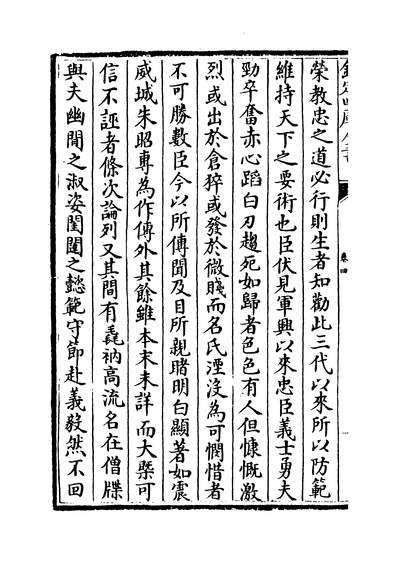 欽定四庫全書
卷四
榮教忠之道必行則生者知勸此三代以來所以防範
維持天下之要術也臣伏見軍興以來忠臣義士勇夫
勁卒奮赤心蹈白刃趨死如歸者色色有人但慷慨激
烈或出於倉猝或發於微賤而名氏湮沒為可憫惜者
不可勝數臣今以所傳聞及目所親睹明白顯著如震
威城朱昭專為作傳外其餘雖本末未詳而大槩可
信不誣者條次論列又其間有毳衲高流名在僧牒
與夫幽閒之淑姿閨閫之懿範守節赴義毅然不回